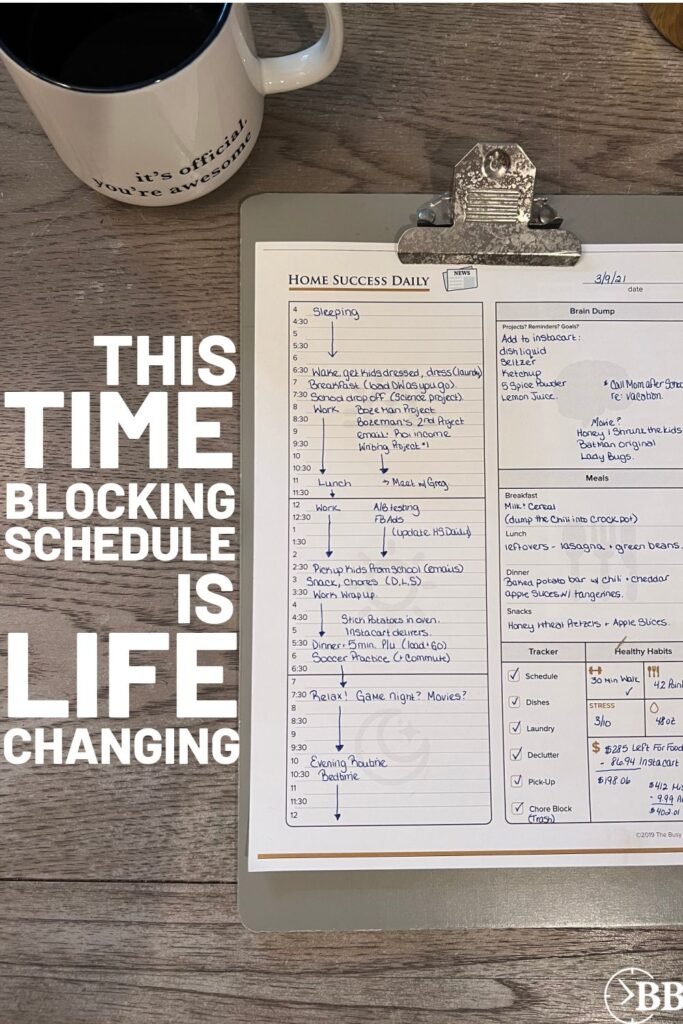 it's official.
you're awesome
THIS
TIME
BLOCKING
SCHEDULE
IS
LIFE
CHANGING
HOME SUCCESS DAILY
NEWS
3/9/21
date
4 Sleeping
4:30
5
5:30
6
6:30 Wake, get kids dressed, dress (laundry)
7 Breakfast (load DW as you go).
7:30 School drop off (Science project).
8 Work Bozeman Project
8:30 Bozeman's 2nd Project
9 email: Roi income
9:30 Writing Project #1
10
10:30
11 Lunch → Meet w/ Greg
11:30
12 Work A/B testing
12:30 FB Ads
1 (update HS Daily)
1:30
2
2:30 Pick up Kids from School (emails)
3 Snack, Chores (D,L,S)
3:30 Work Wrap up
4
4:30 Stick Potatoes in oven.
5 Instacart delivers.
5:30 Dinner + 5 min. P/u (load + go)
6 Soccer Practice (+ commute)
6:30
7
7:30 Relax! Game night? Movies?
8
8:30
9
9:30
10 Evening Routine
10:30 Bedtime
11
11:30
12
Brain Dump
Projects? Reminders? Goals?
Add to instacart:
dish liquid
Seltzer
Ketchup
5 Spice Powder
Lemon Juice.
* Call Mom after
re: vacation.
Movie?
Honey I Shrunk the kids
Batman original
Lady Bugs.
Meals
Breakfast
Milk + Cereal
(dump the Chili into crockpot)
Lunch
leftovers - lasagna + green beans.
Dinner
Baked potato bar w/ chili + cheddar
apple slices w/ tangerines.
Snacks
Honey Wheat Pretzels + Apple Slices.
Tracker
Schedule
Dishes
Laundry
Declutter
Pick-Up
Chore Block
(Trash)
Healthy Habits
30 min Walk
✓
42
STRESS
3/10
48oz
$ $285 Left For Food
- 86.94 Instacart
$198.06
$412
- 9.99
$402.01
©2019 The Busy
BB